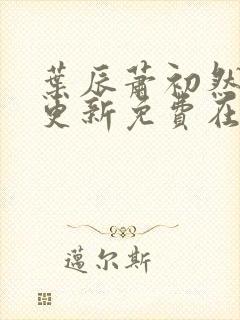 葉辰蕭初然
更新免費在
邁尔斯